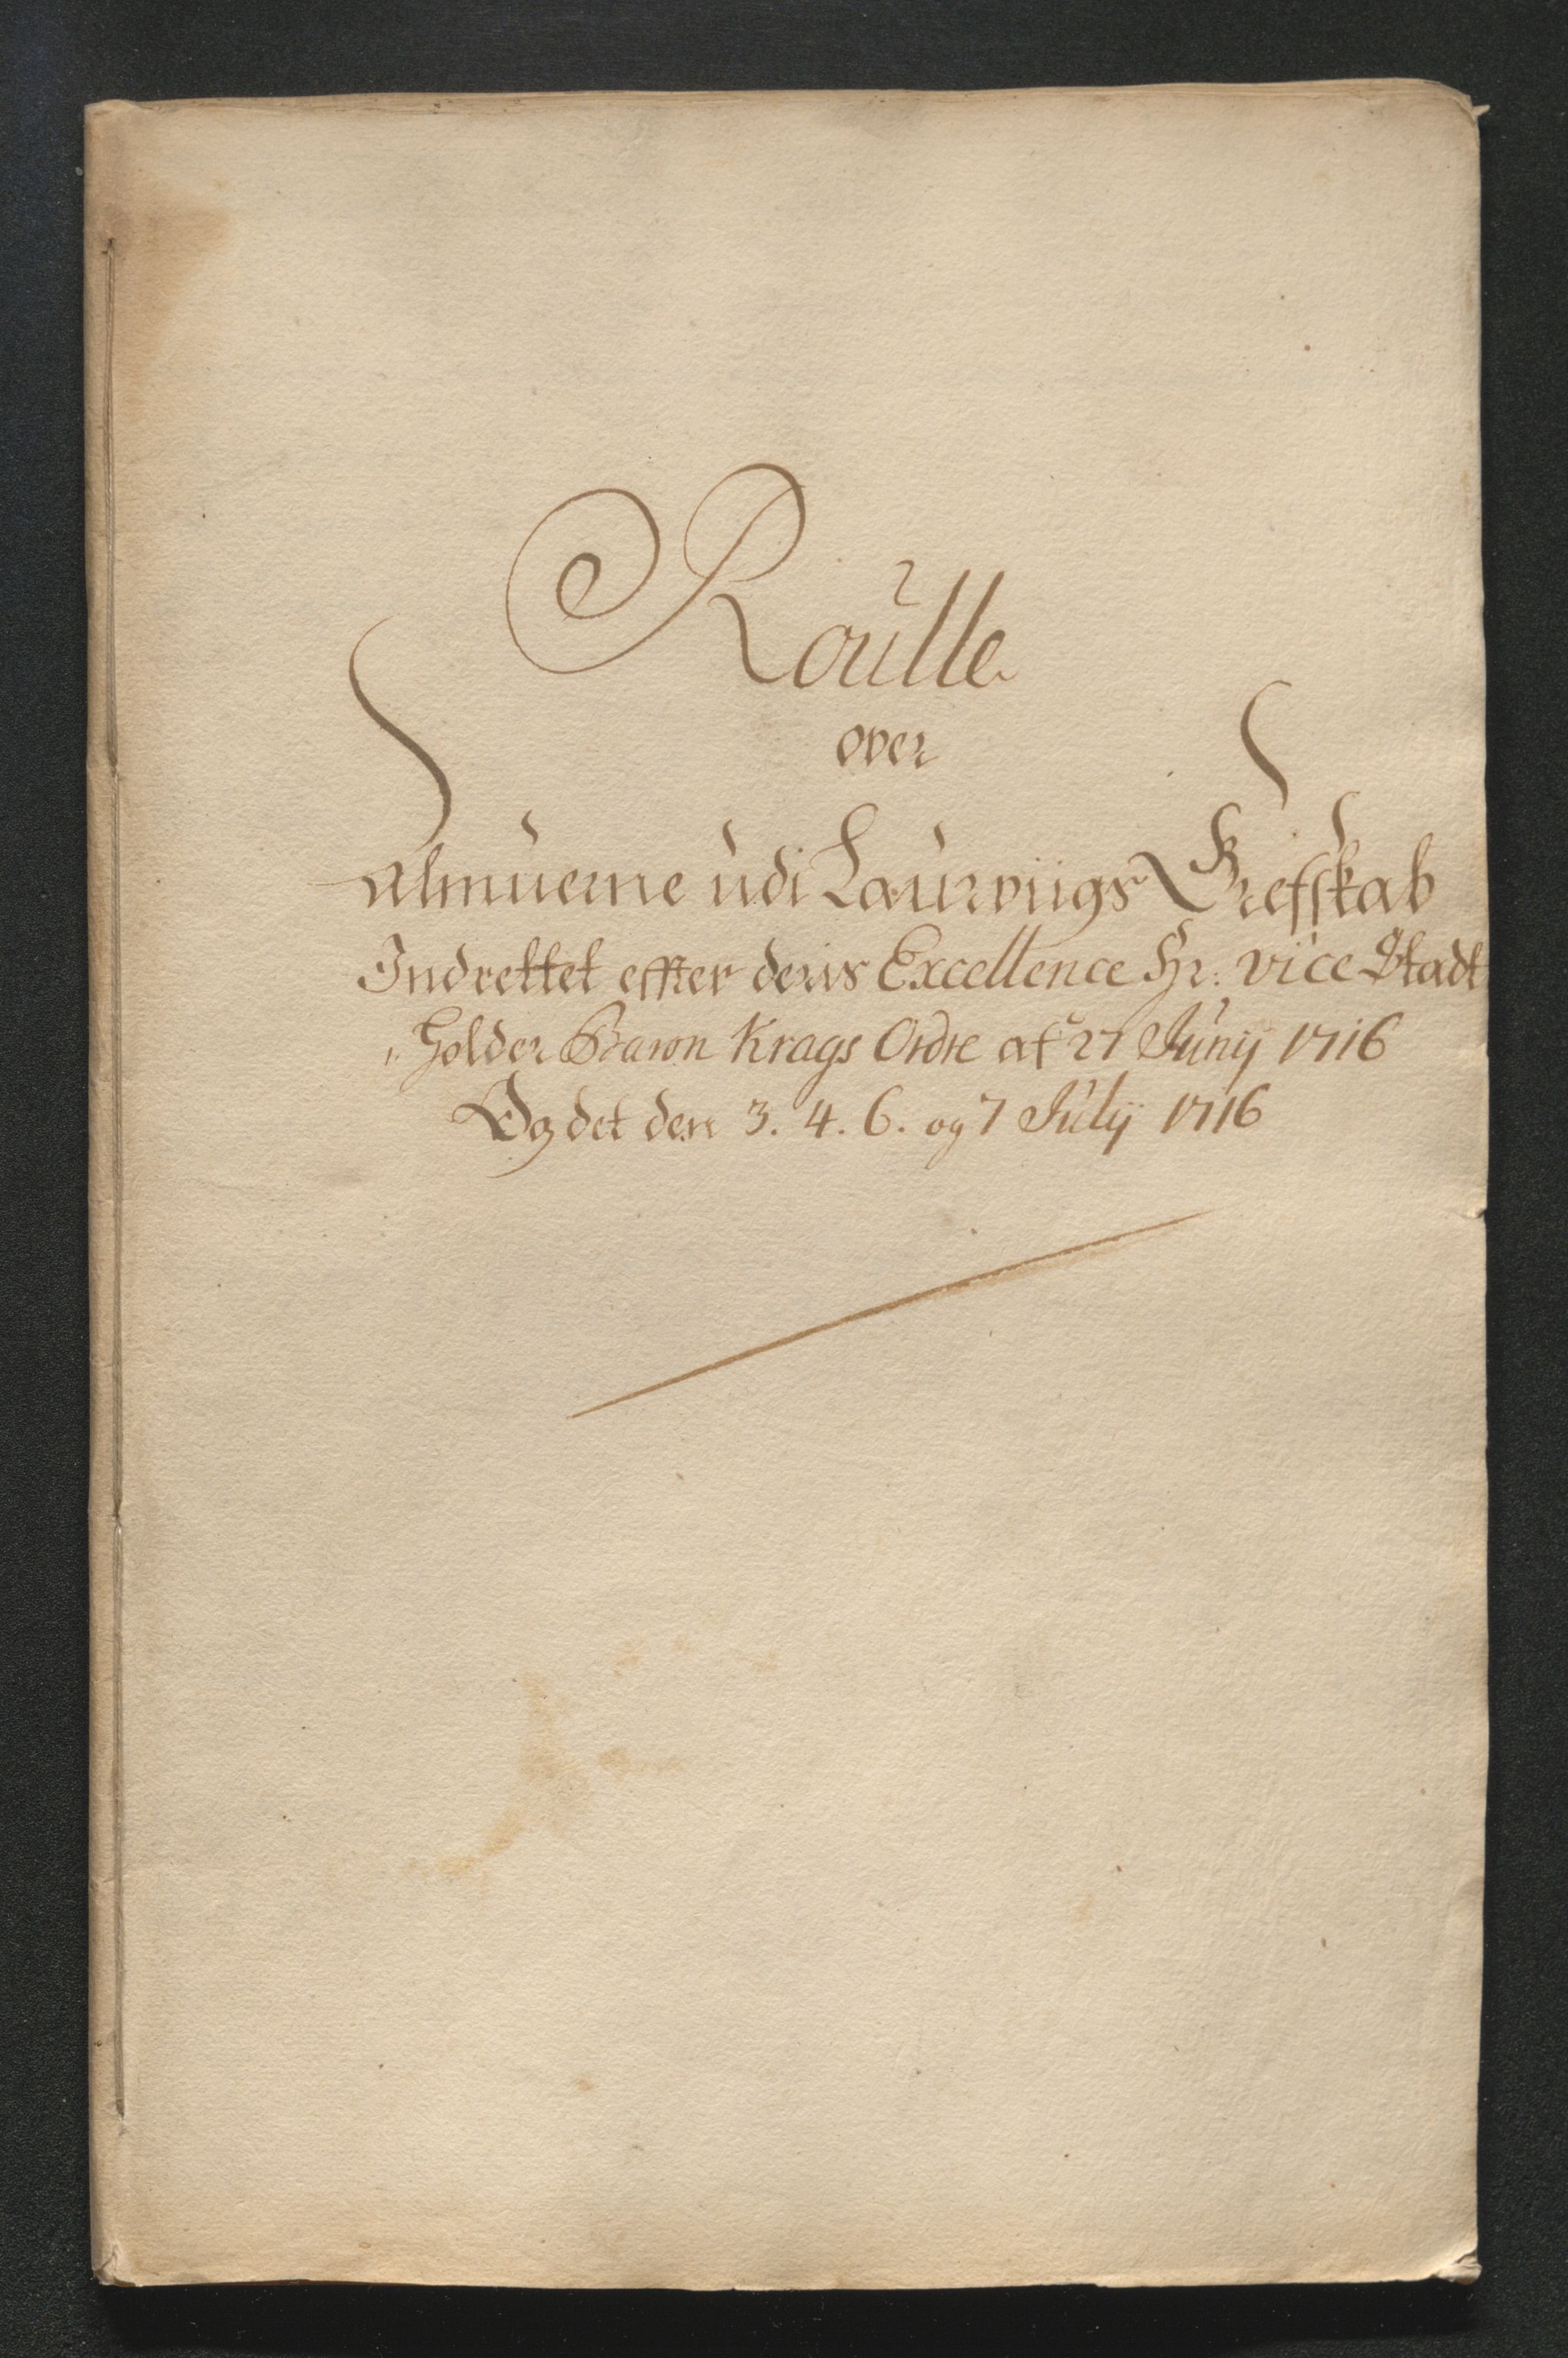 Roulle
over
Almuerne udi Laurviigs Grefskab
Indrettet effter deris Excellence Hr: vice Stadt
„Holder Baron Krags Ordre af 27 Junij 1716
Og det den 3. 4. 6. og 7 Julij 1716